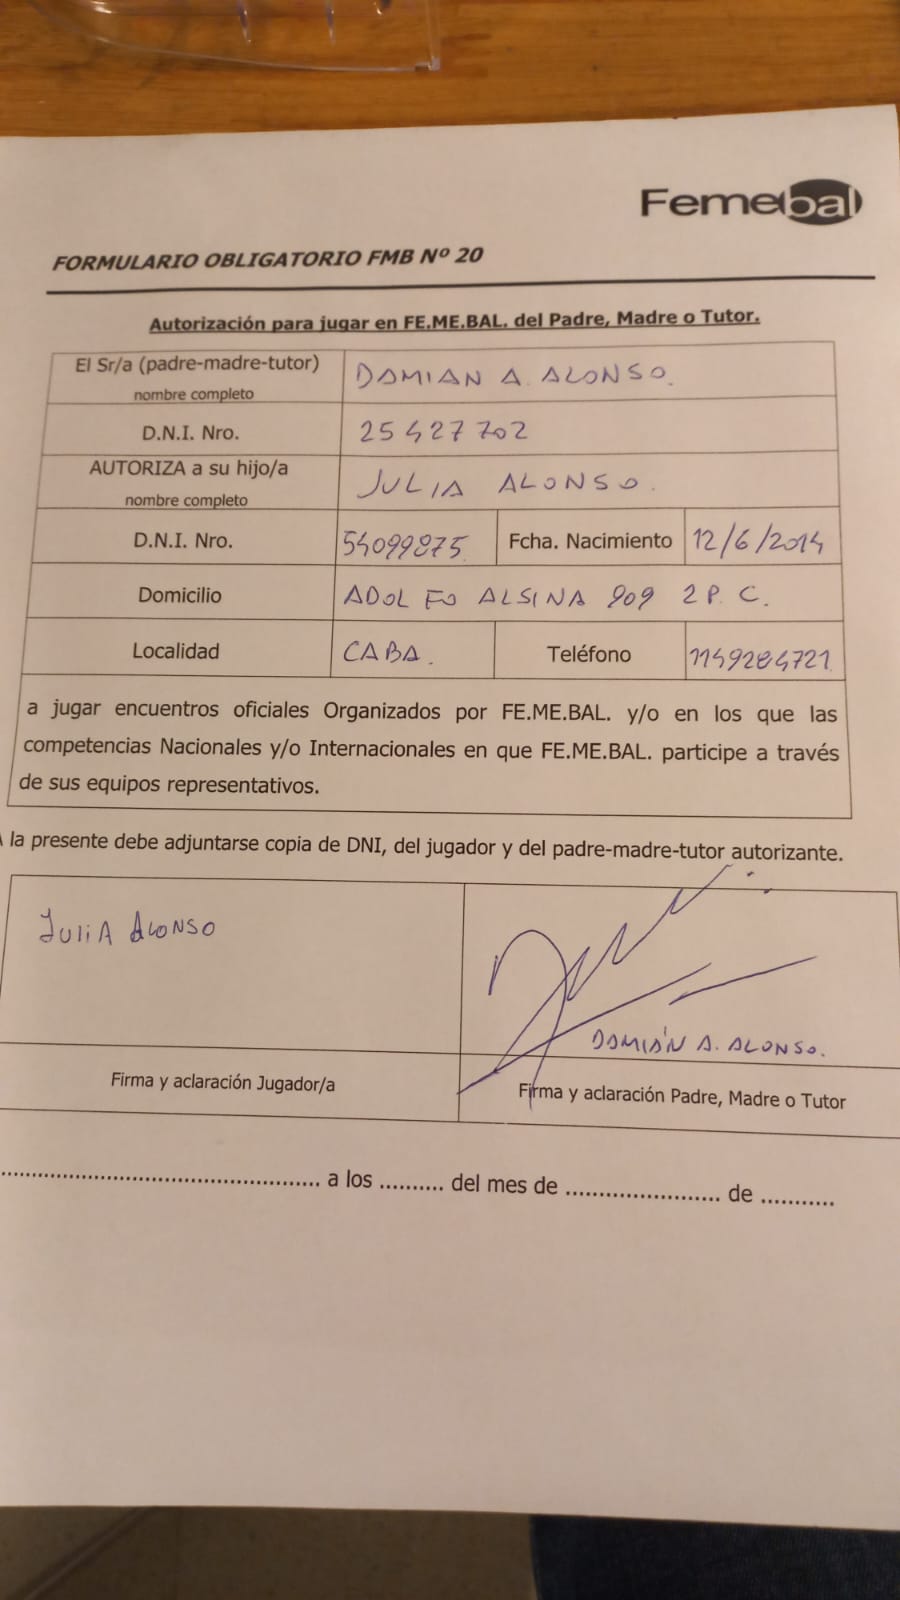 Femebal
FORMULARIO OBLIGATORIO FMB Nº 20
Autorización para jugar en FE.ME.BAL. del Padre, Madre o Tutor.
El Sr/a (padre-madre-tutor) DAMIAN A. ALONSO.
nombre completo
D.N.I. Nro. 25427702
AUTORIZA a su hijo/a JULIA ALONSO.
nombre completo
D.N.I. Nro. 54099875 Fcha. Nacimiento 12/6/2014
Domicilio ADOLFO ALSINA 909 2P. C.
Localidad CABA. Teléfono 1149284721
a jugar encuentros oficiales Organizados por FE.ME.BAL. y/o en los que las
competencias Nacionales y/o Internacionales en que FE.ME.BAL. participe a través
de sus equipos representativos.
A la presente debe adjuntarse copia de DNI, del jugador y del padre-madre-tutor autorizante.
JULIA ALONSO
DAMIÁN A. ALONSO.
Firma y aclaración Jugador/a Firma y aclaración Padre, Madre o Tutor
.................................................. a los .......... del mes de ........................ de ...........